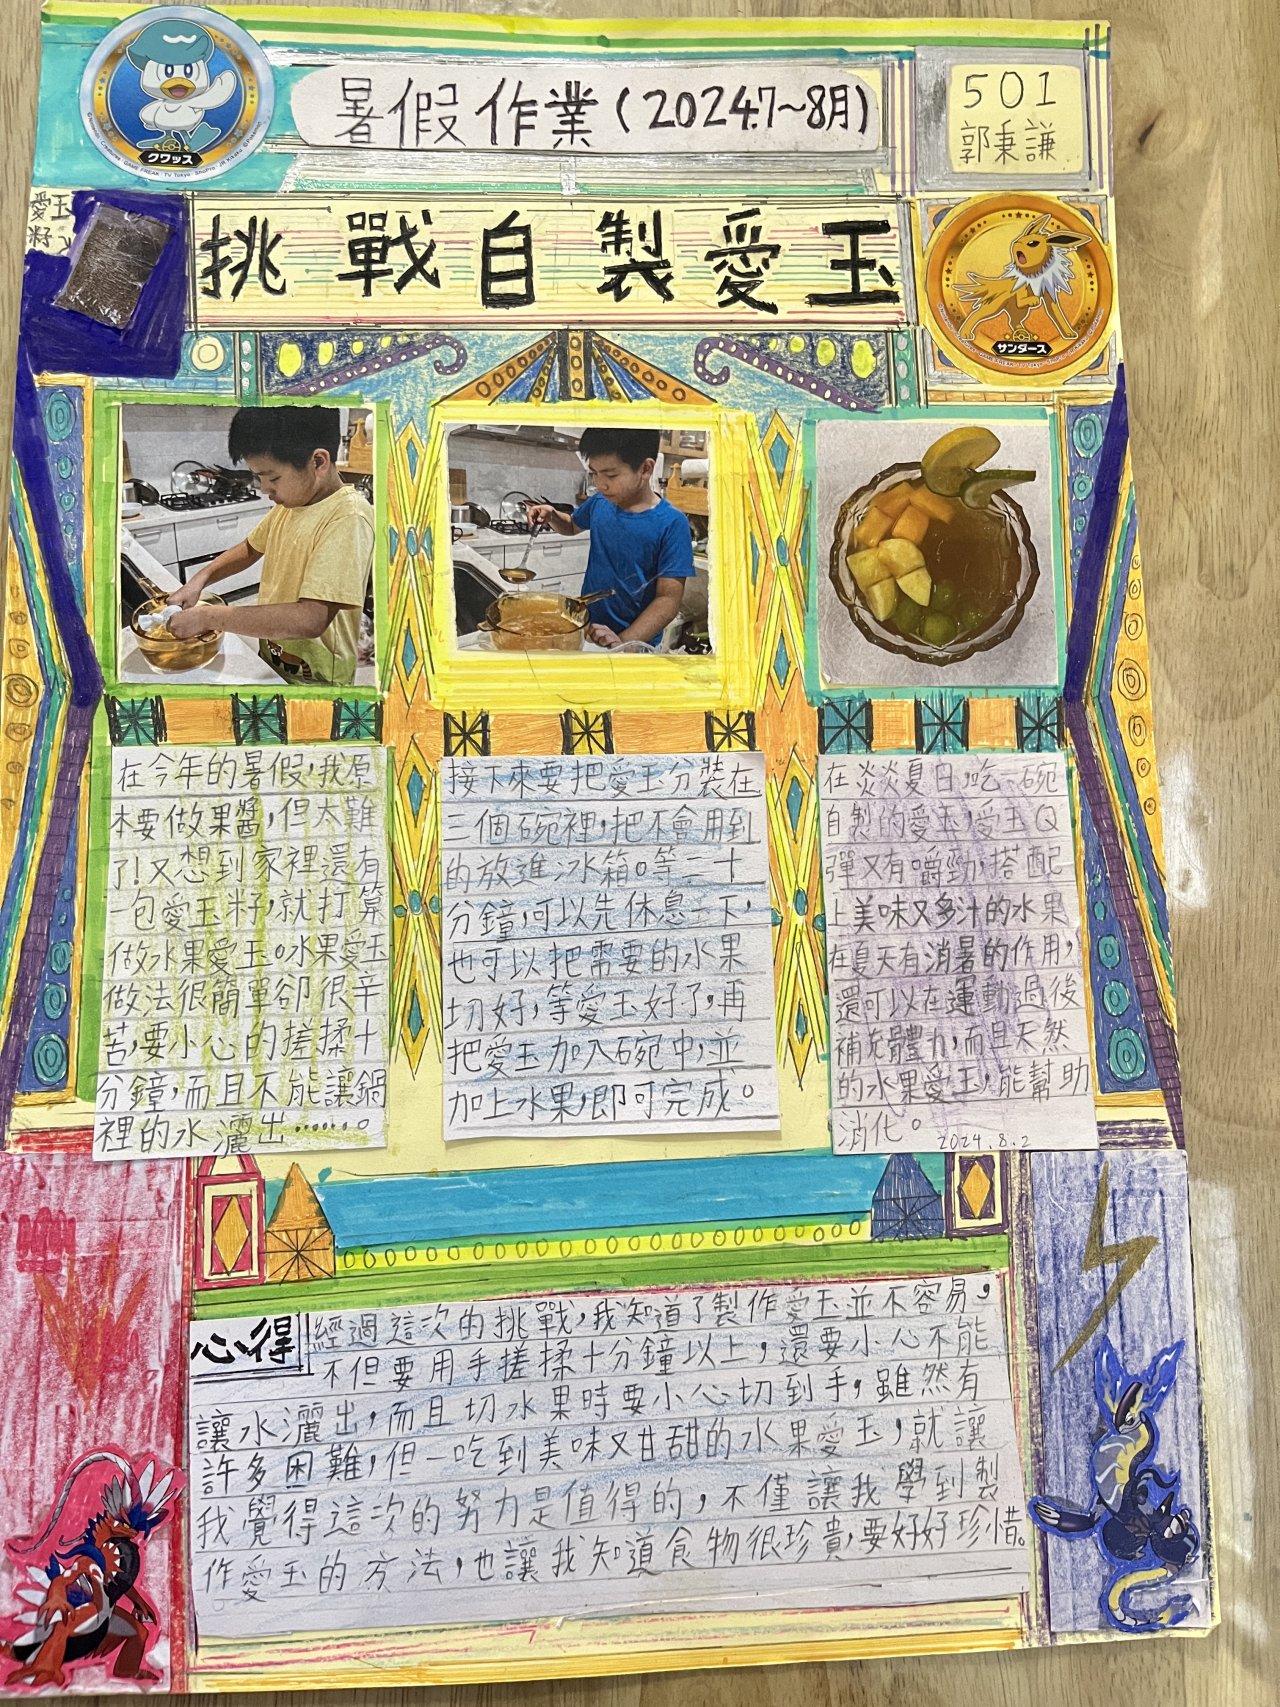 暑假作業(2024.7~8月)
501
郭秉謙
クワッス
愛玉
籽
挑戰自製愛玉
サンダース
在今年的暑假,我原
本要做果醬,但太難
了!又想到家裡還有
一包愛玉籽,就打算
做水果愛玉。水果愛玉
做法很簡單卻很辛
苦,要小心的搓揉十
分鐘,而且不能讓鍋
裡的水灑出……。
接下來要把愛玉分裝在
三個碗裡,把不會用到
的放進冰箱。等二十
分鐘,可以先休息一下,
也可以把需要的水果
切好,等愛玉好了,再
把愛玉加入碗中,並
加上水果,即可完成。
在炎炎夏日,吃一碗
自製的愛玉,愛玉Q
彈又有嚼勁,搭配
上美味又多汁的水果
在夏天有消暑的作用,
還可以在運動過後
補充體力,而且天然
的水果愛玉,能幫助
消化。
2024.8.2
心得
經過這次的挑戰,我知道了製作愛玉並不容易,
不但要用手搓揉十分鐘以上,還要小心不能
讓水灑出,而且切水果時要小心切到手,雖然有
許多困難,但一吃到美味又甘甜的水果愛玉,就讓
我覺得這次的努力是值得的,不僅讓我學到製
作愛玉的方法,也讓我知道食物很珍貴,要好好珍惜。